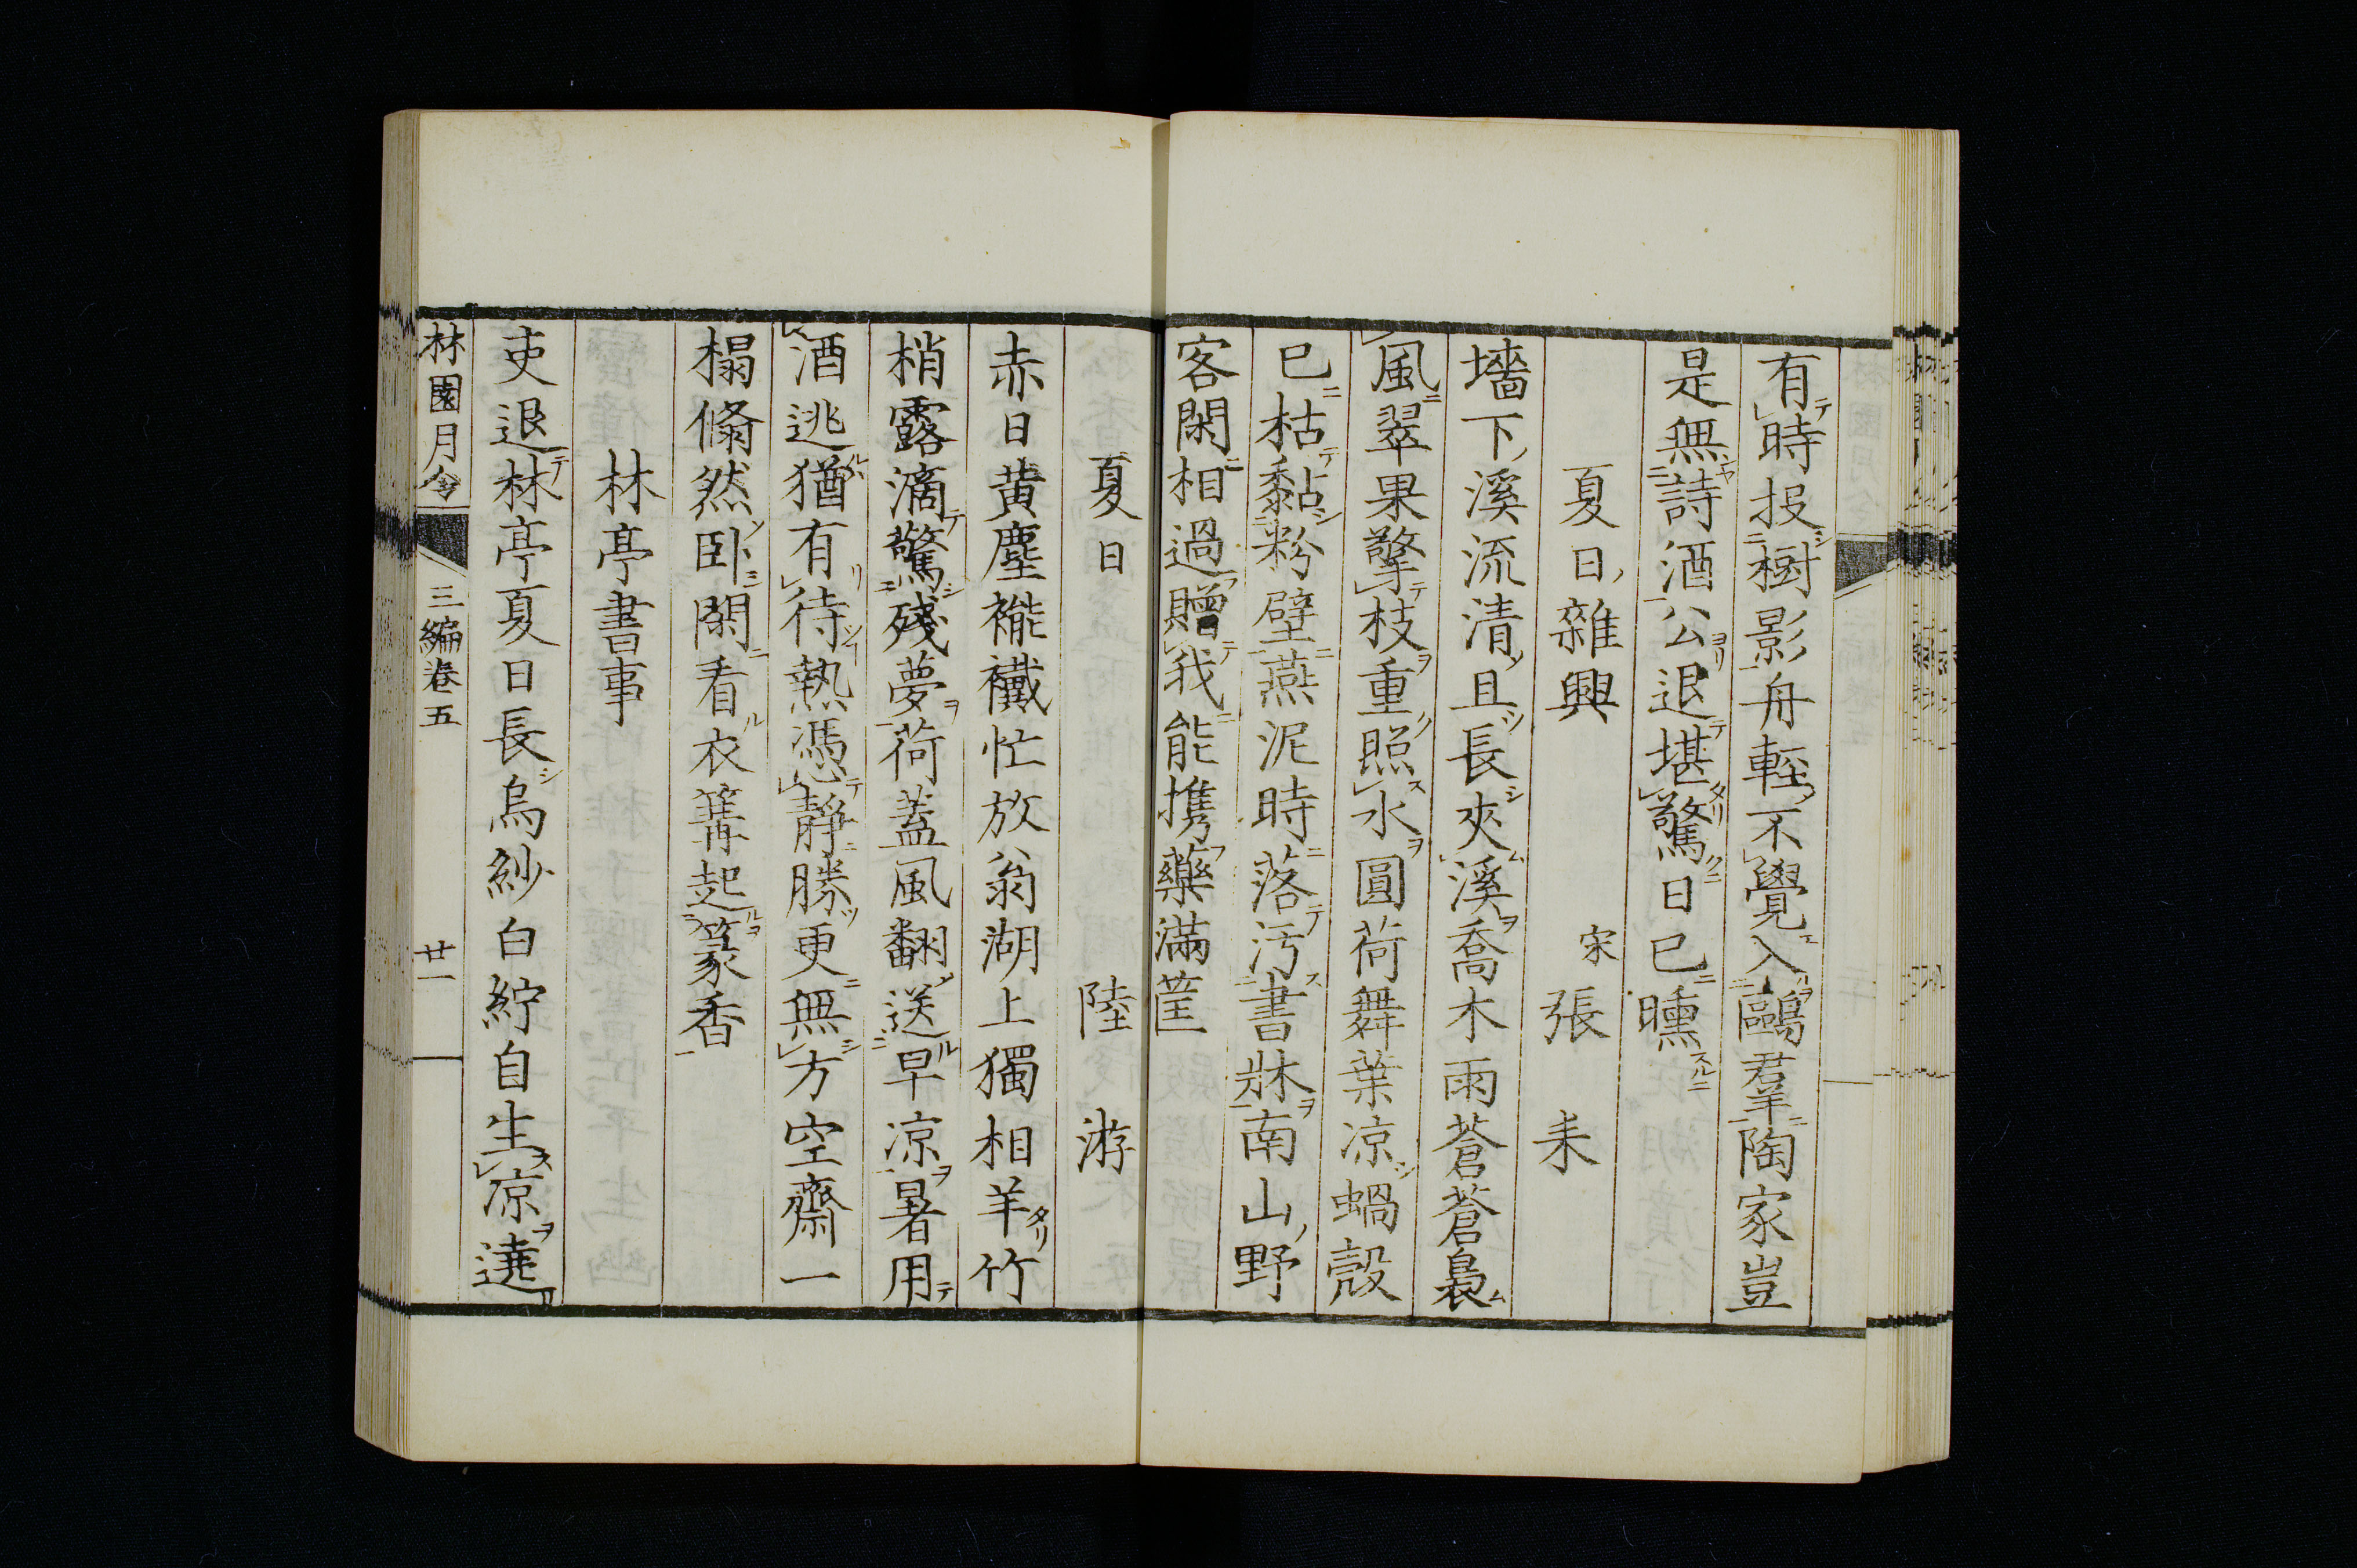 有時投樹影舟輕不覺入鷗羣陶家豈
是無詩酒公退堪驚日已曛
夏日雜興　宋　張耒
墻下溪流清且長夾溪喬木雨蒼蒼裊
風翠果擎枝重照水圓荷舞葉凉蝸殼
已枯黏粉壁燕泥時落汚書牀南山野
客閑相過贈我能携藥滿筐
夏日　陸游
赤日黃塵襶忙放翁湖上獨相羊竹
梢露滴驚殘夢荷蓋風翻送早凉暑用
酒逃猶有待熱憑靜勝更無方空齋一
榻翛然卧閑看衣篝起篆香
林亭書事
吏退林亭夏日長烏紗白紵自生凉遶
林園月令　三編卷五　廿一